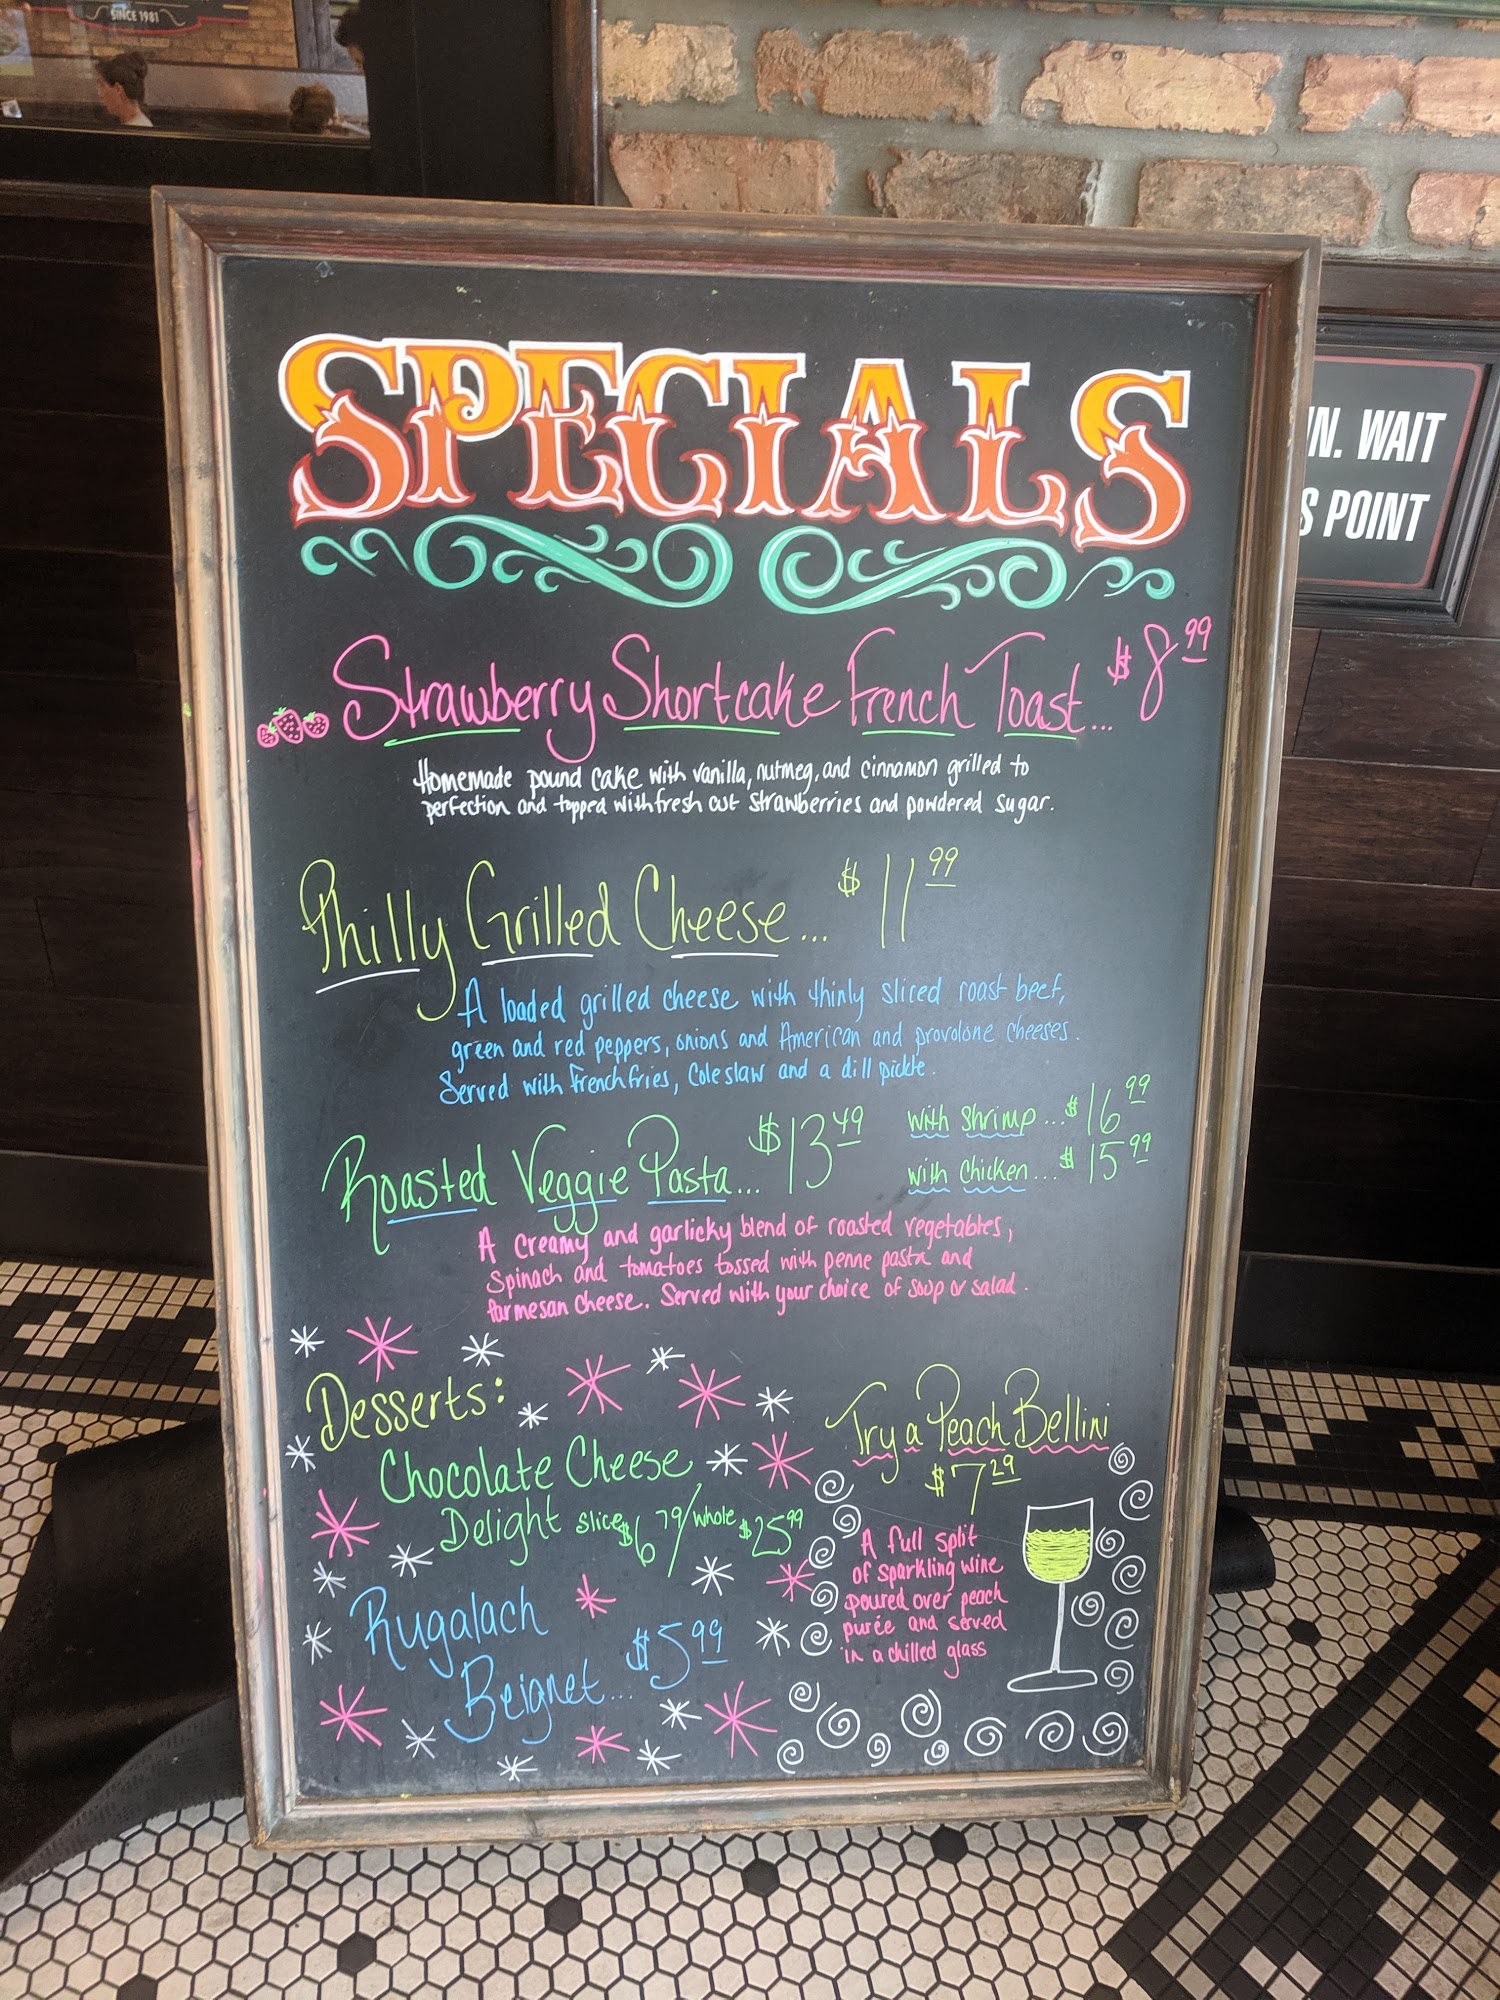 SINCE 1981
N. WAIT
S POINT
SPECIALS
Strawberry Shortcake French Toast... $8.99
Homemade pound cake with vanilla, nutmeg, and cinnamon grilled to
perfection and topped with fresh cut strawberries and powdered sugar.
Philly Grilled Cheese... $11.99
A loaded grilled cheese with thinly sliced roast beef,
green and red peppers, onions and American and provolone cheeses.
Served with french fries, Coleslaw and a dill pickle.
Roasted Veggie Pasta... $13.49
with Shrimp... $16.99
with Chicken... $15.99
A creamy and garlicky blend of roasted vegetables,
Spinach and tomatoes tossed with penne pasta and
Parmesan cheese. Served with your choice of soup or salad.
Desserts:
Chocolate Cheese
Delight slice $6.79/whole $25.99
Rugalach
Beignet... $5.99
Try a Peach Bellini
$7.29
A full split
of sparkling wine
poured over peach
purée and served
in a chilled glass